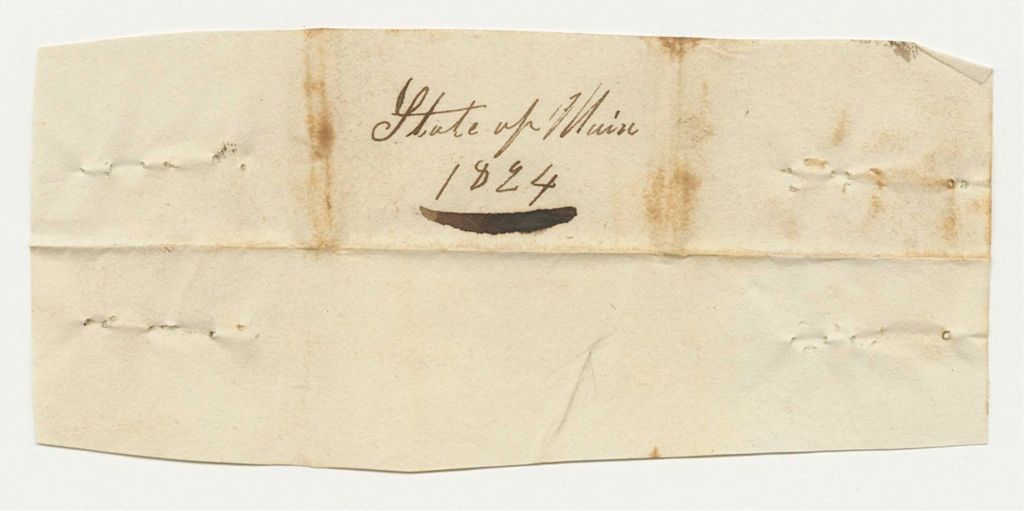 State of Main
1824